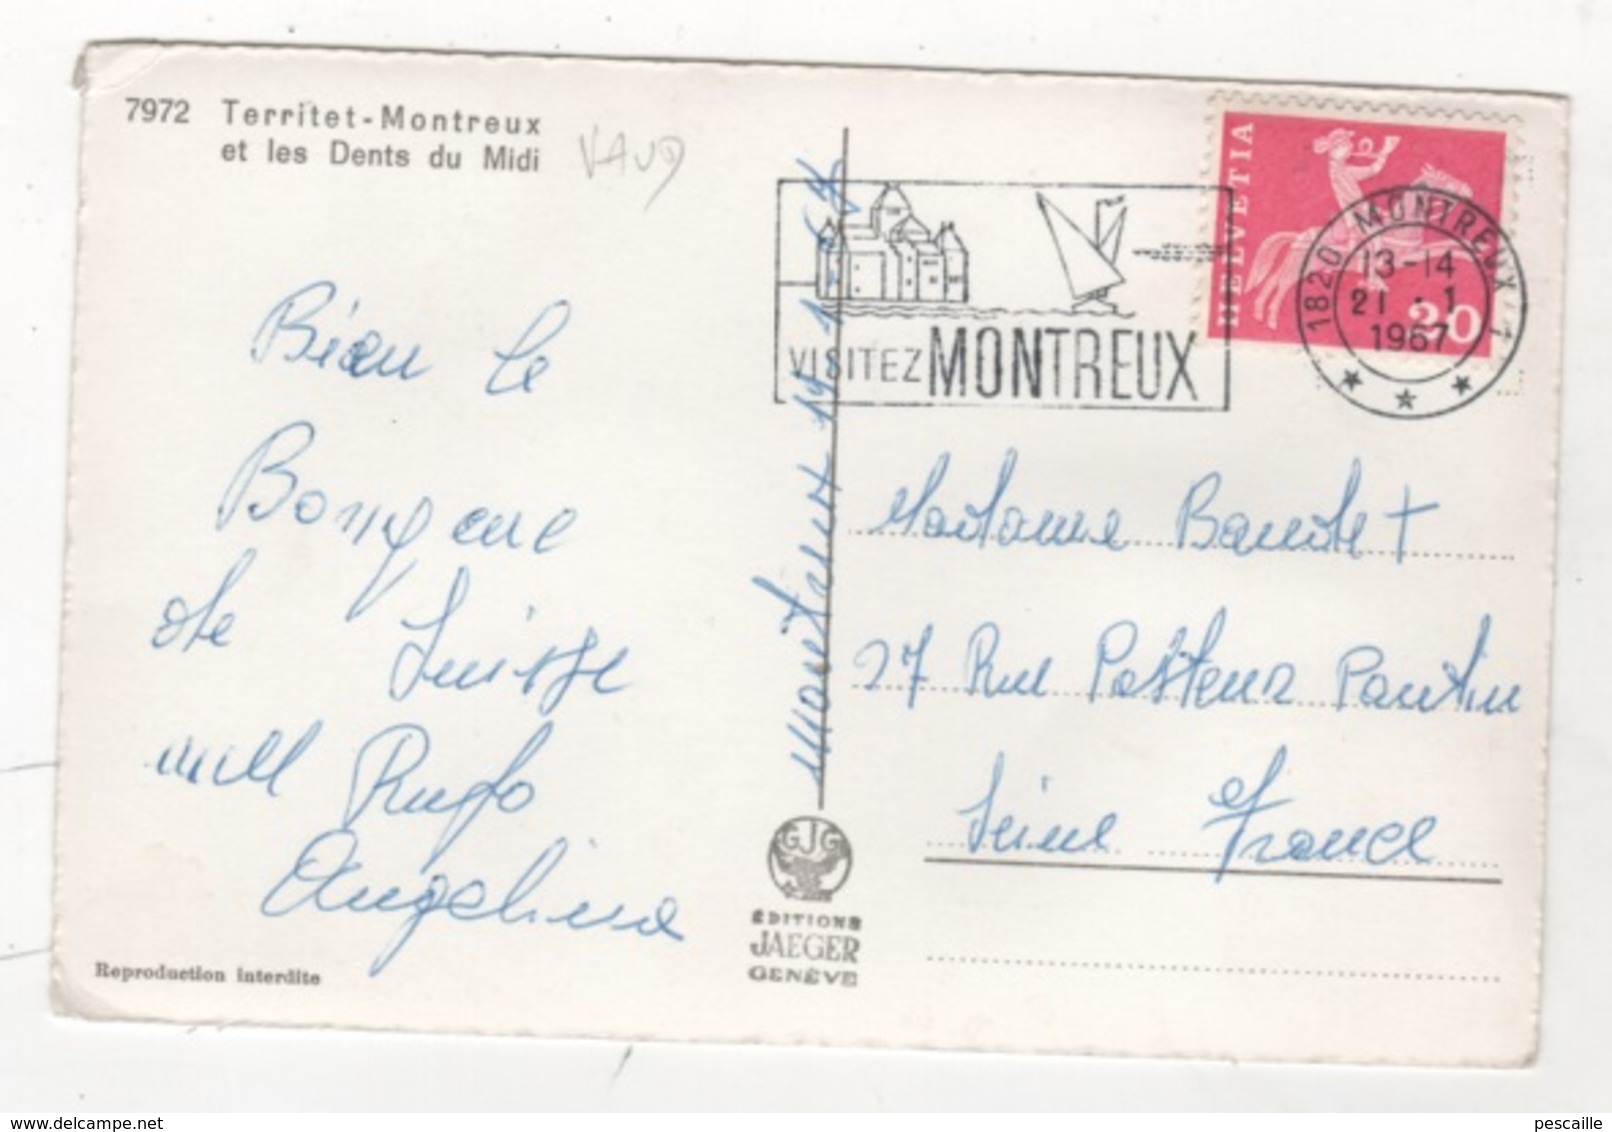 7972 Territet-Montreux
et les Dents du Midi
VAUD
HELVETIA
20
1820 MONTREUX 1
13-14
21.-1
1967
VISITEZ MONTREUX
Bien le
Bonjour
de Suisse
mell Rufo
Angelina
Montreux 19-1-67
Madame Baudet
27 Rue Pasteur Pantin
Seine France
GJG
ÉDITIONS
JAEGER
GENÈVE
Reproduction interdite
www.delcampe.net
pescaille